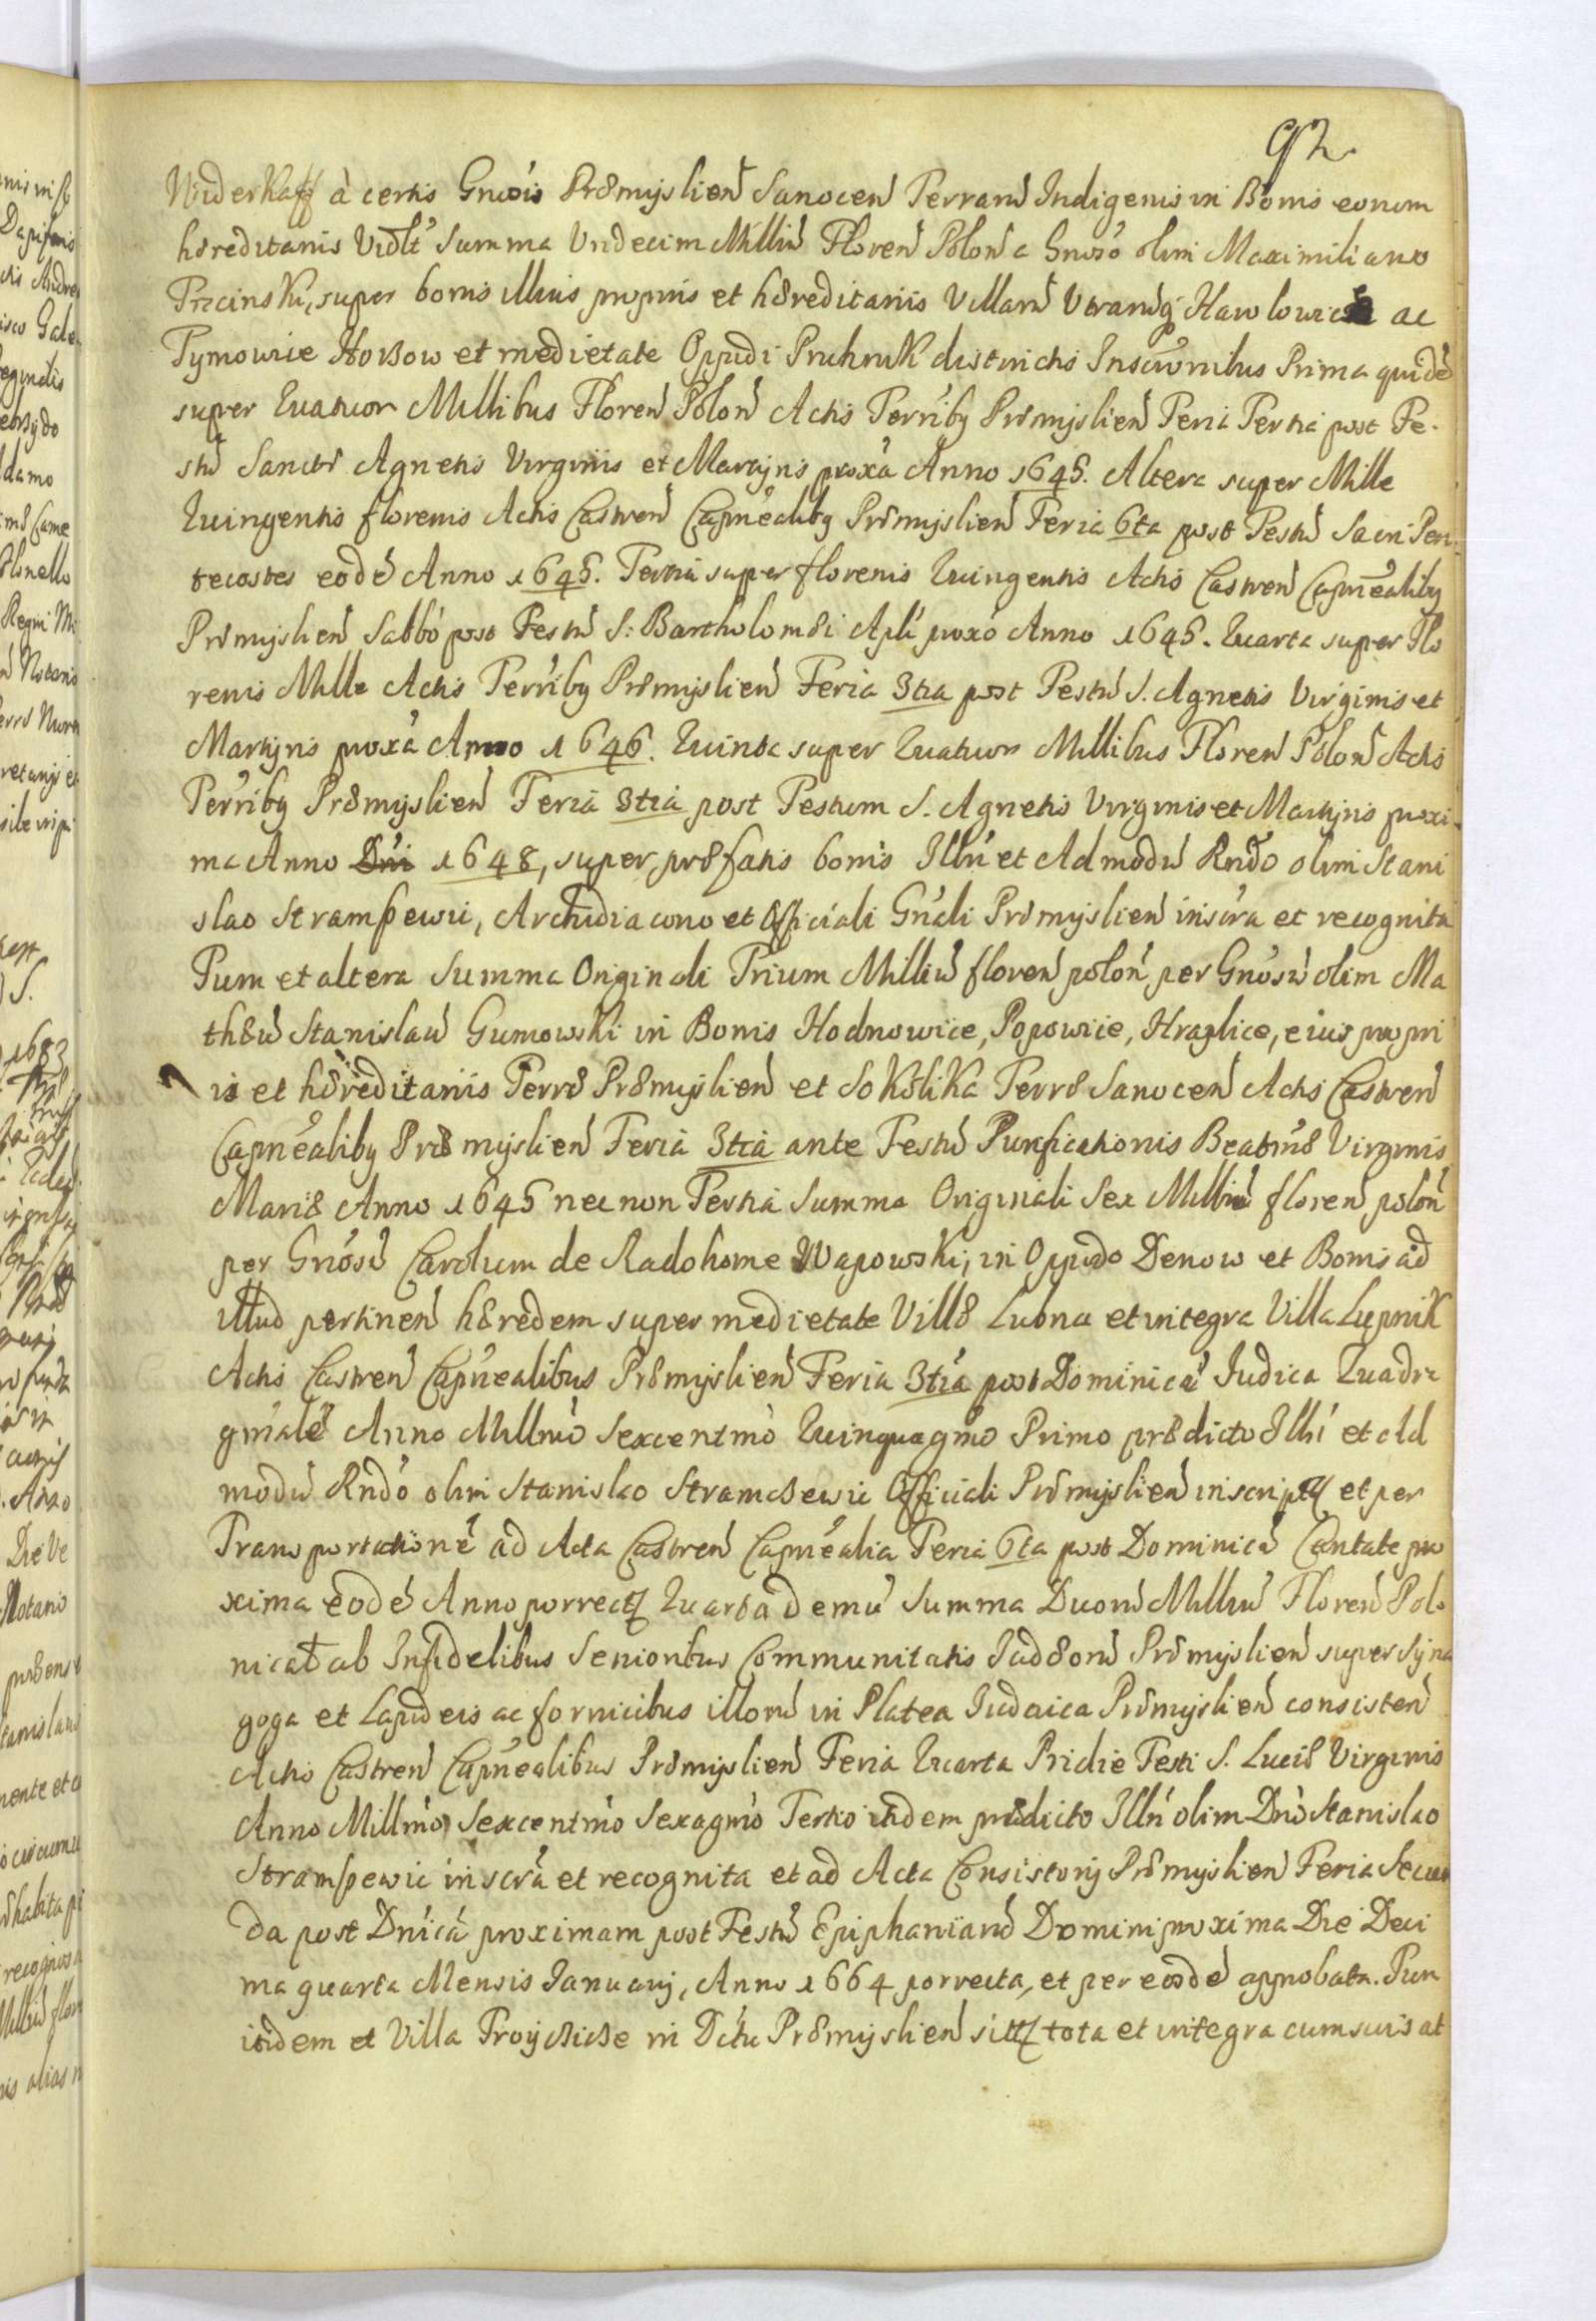 92
Widerkaff à certis Gnôis Præmyslien̄ Sanocen̄ Terrarū Indigenis in Bonis eorum
hæreditariis Vidlt Summa Undecim Milliū Floren̄ Polon̄ a Gnoso olim Maximiliano
Trzcinski, super bonis illius propriis et hæreditariis Villarū Utrarūq Hawlowice ac
Tymowice Horzow et medietate Oppidi Pruhnik districtis Inscrōnibus Prima quidē
super Quatuor Millibus Floren̄ Polon̄ Actis Terribg Præmyslien̄ Feria Tertia post Fe-
stū Sanctæ Agnetis Virginis et Martyris proxa Anno 1645. Altera super Mille
Quingentis florenis Actis Castren̄ Capnēalibg Præmyslien̄ Feria 6ta post Festū Sacri Pen-
tecostes eodē Anno 1645. Tertia super florenis Quingentis Actis Castren̄ Capnēalibg
Præmyslien̄ Sabbo post Festū S: Bartholomæi Apli proxo Anno 1645. Quarta super Flo
renis Mille Actis Terribg Præmyslien̄ Feria 3tia post Festū S. Agnetis Virginis et
Martyris proxa Anno 1646. Quinta super Quatuor Millibus Floren̄ Polon̄ Actis
Terribg Præmyslien̄ Feria 3tia post Festum S. Agnetis Virginis et Martyris proxi-
ma Anno Dni 1648, super præfatis bonis Illri et Admodū Rndo olim Stani
slao Stramszewic, Archidiacono et Officiali Gnali Præmyslien̄ inscra et recognita
Tum et altera Summa Originali Trium Milliū floren̄ polon̄ per Gnosū olim Ma
thæū Stanislaū Gumowski in Bonis Hodnowice, Popowice, Hraplice, eius propri
is et hæreditariis Terræ Præmyslien̄ et Sokolika Terræ Sanocen̄ Actis Castren̄
Capnēalibg Præmyslien̄ Feria 3tia ante Festū Purificationis Beatmæ Virginis
Mariæ Anno 1645 nec non Tertia Summa Originali Sex Milliū floren̄ polon̄
per Gnosū Carolum de Radohome Wapowski, in Oppido Denow et Bonis ad
illud pertinen̄ hæredem super medietate Villæ Lubna et integra Villa Lupnik
Actis Castren̄ Capnēalibus Præmyslien̄ Feria 3tia post Dominicā Judica Quadra
gmalē Anno Millmo Sexcentmo Quinquagmo Primo prædicto Illri et Ad
modū Rndo olim Stanislao Stramszewic Officiali Præmyslien̄ inscripta et per
Transportationē ad Acta Castren̄ Capnēalia Feria 6ta post Dominicā Cantate pro
xima eodē Anno porrecta Quarta demū Summa Duorū Milliū Floren̄ Polo
nical ab Infidelibus Senioribus Communitatis Judæorū Præmyslien̄ super Syna
goga et Lapideis ac fornicibus illorū in Platea Judaica Præmyslien̄ consisten̄
Actis Castren̄ Capnēalibus Præmyslien̄ Feria Quarta Pridie Festi S. Luciæ Virginis
Anno Millmo Sexcentmo Sexagmo Tertio itidem prædicto Illri olim Dno Stanislao
Stramszewic inscra et recognita et ad Acta Consistorij Præmyslien̄ Feria Secun
da post Dnicā proximam post Festū Epiphaniarū Domini proxima Die Deci
ma quarta Mensis Januarij, Anno 1664 porrecta, et per eosdē approbata. Tum
itidem et Villa Troyczicze in Dctu Præmyslien̄ sita tota et integra cum suis at